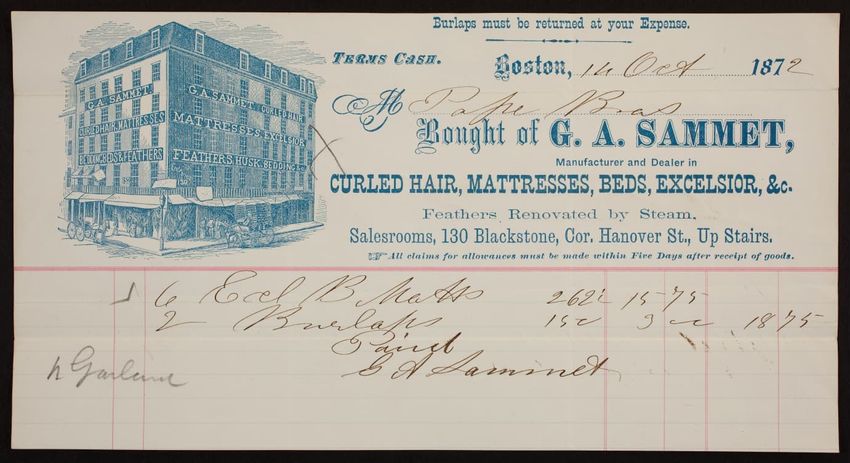 Burlaps must be returned at your Expense.
Terms Cash.
Boston, 14 Oct 1872
M Pope Bros
Bought of G. A. SAMMET,
Manufacturer and Dealer in
CURLED HAIR, MATTRESSES, BEDS, EXCELSIOR, &c.
Feathers Renovated by Steam.
Salesrooms, 130 Blackstone, Cor. Hanover St., Up Stairs.
All claims for allowances must be made within Five Days after receipt of goods.
G. A. SAMMET.
CURLED HAIR, MATTRESSES
BEDDING, BEDS & FEATHERS
G. A. SAMMET CURLED HAIR
MATTRESSES, EXCELSIOR
FEATHERS, HUSK, BEDDING &c.
6 Excl B Matts 262½ 15 75
2 Burlaps 150 3 00 18 75
Paid
G A Sammet
Garland